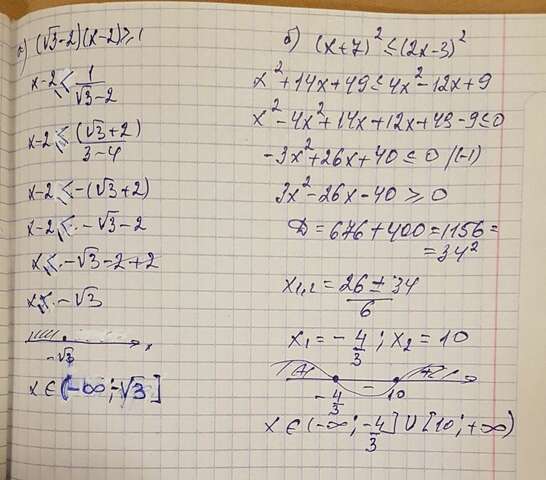 а) (√3-2)(x-2)≥1
x-2≤ 1/(√3-2)
x-2≤ (√3+2)/(3-4)
x-2≤-(√3+2)
x-2≤-√3-2
x≤-√3-2+2
x≤-√3
-√3 x
x∈(-∞;-√3]
б) (x+7)²≤(2x-3)²
x²+14x+49≤4x²-12x+9
x²-4x²+14x+12x+49-9≤0
-3x²+26x+40≤0 |(-1)
3x²-26x-40≥0
D=676+400=1156=
=34²
x₁,₂=(26±34)/6
x₁=-4/3; x₂=10
+ - +
-4/3 10
x∈(-∞;-4/3]∪[10;+∞)